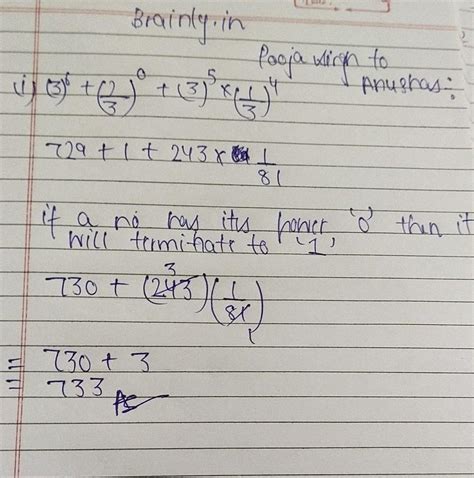 Brainly.in
Pooja to
Anushas:-
(i) (3)⁶ + (2/3)⁰ + (3)⁵ × (1/3)⁴
729 + 1 + 243 × 1/81
if a no has its power '0' then it
will terminate to '1'
730 + (243)(1/81)
3
1
= 730 + 3
= 733